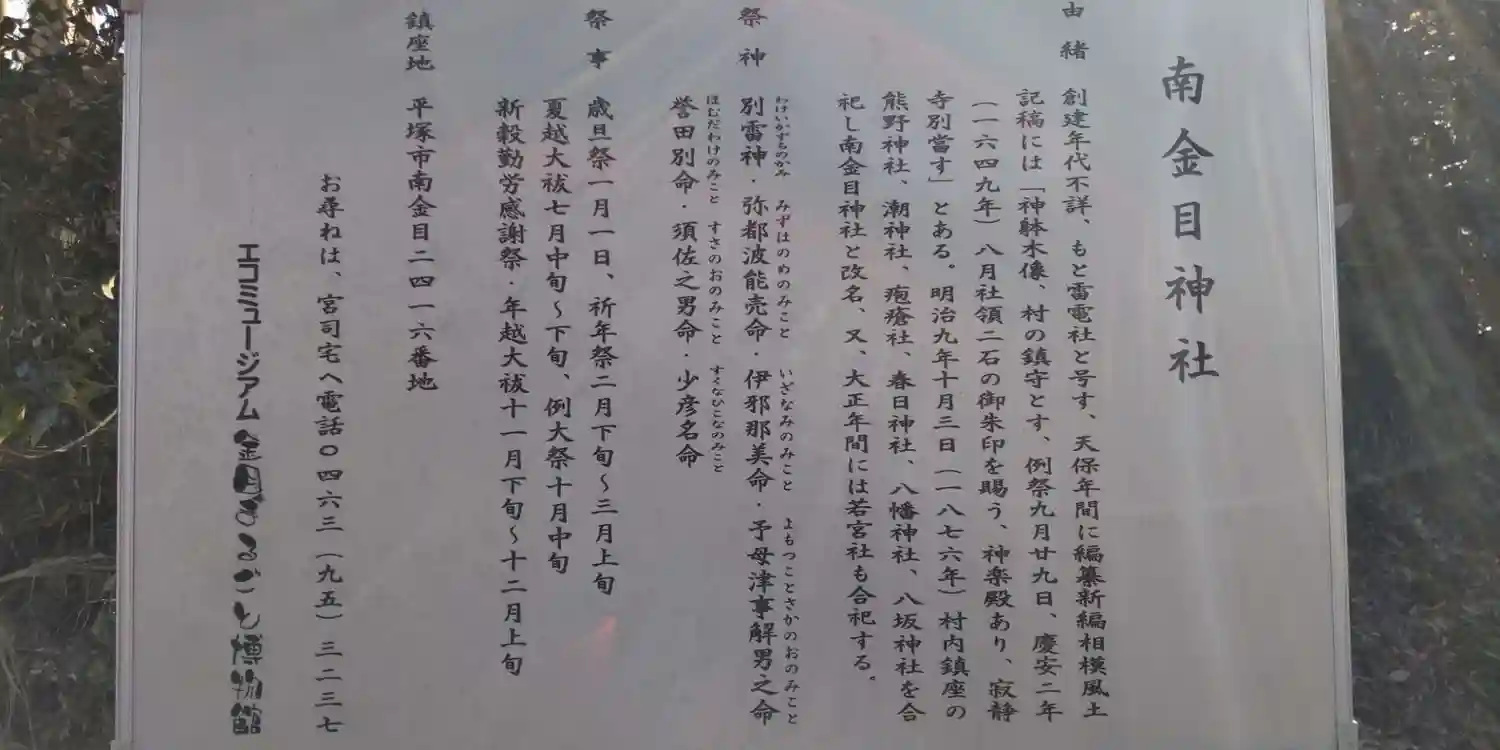 南金目神社
由緒 創建年代不詳、もと雷電社と号す、天保年間に編纂新編相模風土
記稿には「神躰木像、村の鎮守とす、例祭九月廿九日、慶安二年
(一六四九年)八月社領二石の御朱印を賜う、神楽殿あり、寂静
寺別當す」とある。明治九年十月三日(一八七六年)村内鎮座の
熊野神社、潮神社、疱瘡社、春日神社、八幡神社、八坂神社を合
祀し南金目神社と改名、又、大正年間には若宮社も合祀する。
わけいかずちのかみ みずはのめのみこと いざなみのみこと よもつことさかのおのみこと
祭神 別雷神・弥都波能売命・伊邪那美命・予母津事解男之命
ほむだわけのみこと すさのおのみこと すくなひこなのみこと
誉田別命・須佐之男命・少彦名命
祭事 歳旦祭一月一日、祈年祭二月下旬〜三月上旬
夏越大祓七月中旬〜下旬、例大祭十月中旬
新穀勤労感謝祭・年越大祓十一月下旬〜十二月上旬
鎮座地 平塚市南金目二四一六番地
お尋ねは、宮司宅へ電話〇四六三(九五)三二三七
エコミュージアム 金目まるごと博物館